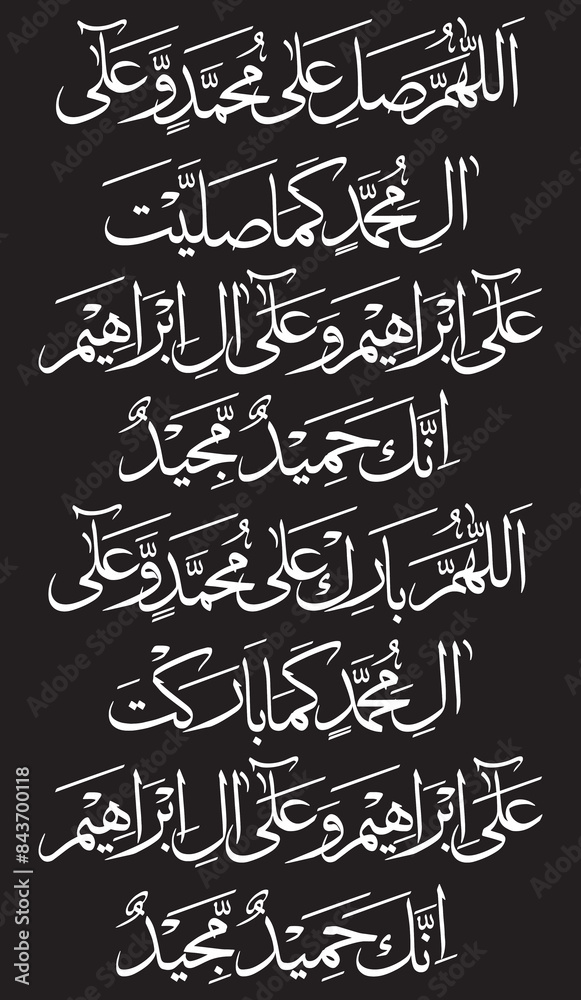 اَللّٰهُمَّ صَلِ عَلٰى مُحَمَّدٍ وَّعَلٰٓى
اٰلِ مُحَمَّدٍ كَمَا صَلَيَّتْ
عَلٰٓى اِبْرَاهِيْمَ وَعَلٰٓى اٰلِ اِبْرَاهِيْمَ
اِنَّكَ حَمِيْدٌ مَّجِيْدٌ
اَللّٰهُمَّ بَارِكْ عَلٰى مُحَمَّدٍ وَّعَلٰٓى
اٰلِ مُحَمَّدٍ كَمَا بَارَكْتَ
عَلٰٓى اِبْرَاهِيْمَ وَعَلٰٓى اٰلِ اِبْرَاهِيْمَ
اِنَّكَ حَمِيْدٌ مَّجِيْدٌ
Adobe Stock | #843700118